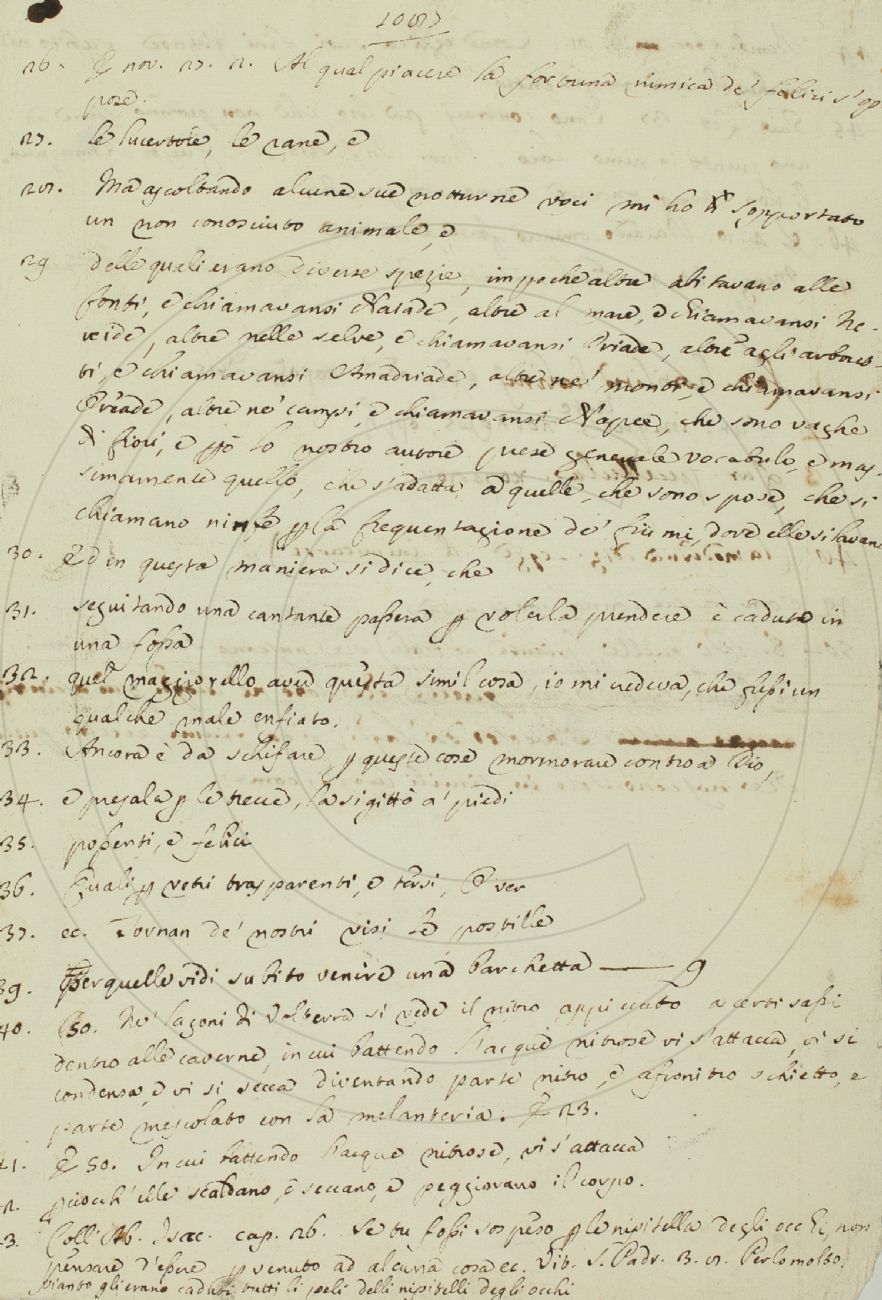 26. E nov. 27. 2. Al qual piacere la fortuna nimica de' felici s'op
pose.
27. le lucertole, le rane, e
28. Ma ascoltando alcune sue notturne voci mi ho di sopportato
un non conosciuto animale, e
29 delle quali erano diverse spezie, impochè altre abitavano alle
fonti, e chiamavansi Naiade, altre al mare, e chiamavansi Ne-
reide, altre nelle selve, e chiamavansi Driade, altre agli arbores-
ti, e chiamavansi Amadriade, altre ne' monti, e chiamavansi
Oreade, altre ne' campi, e chiamavansi Napee, che sono vaghe
di fiori, e pò lo nostro autore prese generale vocabulo, e mas-
simamente quello, che s'adatta a quelle, che sono spose, che si
chiamano ninfe p la frequentazione de' fiumi, dove elle si lavan
30. Ed in questa maniera si dice, che
31. seguitando una cantante passera p volerla prendere è caduto in
una fossa
32. quel maggiorello avea questa simil cosa, io mi vedeva, che fussi un
qualche male enfiato.
33. Ancora è da schifare p queste cose mormorare contro a Dio,
34. e presala p le trecce, la si gittò a' piedi
35. possenti, e felici
36. Quali p vetri trasparenti, e tersi, Over
37. ec. Tornan de' nostri visi le postille
39. Per quelle vidi subito venire una barchetta — 9
40. 50. Ne' lagoni di Volterra si vede il nitro appiccato a certi sassi
dentro alle caverne, in cui battendo l'acque nitrose vi s'attacca, vi si
condensa, e vi si secca diventando parte nitro, e afronitro schietto, e
parte mescolato con la melanteria. E 23.
41. E 50. In cui battendo l'acque nitrose, vi s'attacca
2. pciocch'elle scaldano, e seccano, e peggiorano il corpo.
3. Coll. Ab. Isac. cap. 26. Se tu fossi sospeso p le nipitella degli occhi, non
pensare d'essere p venuto ad alcuna cosa ec. Vit. S. Padr. Per lo molto
pianto gli erano caduti tutti li peli delli nipitelli degli occhi